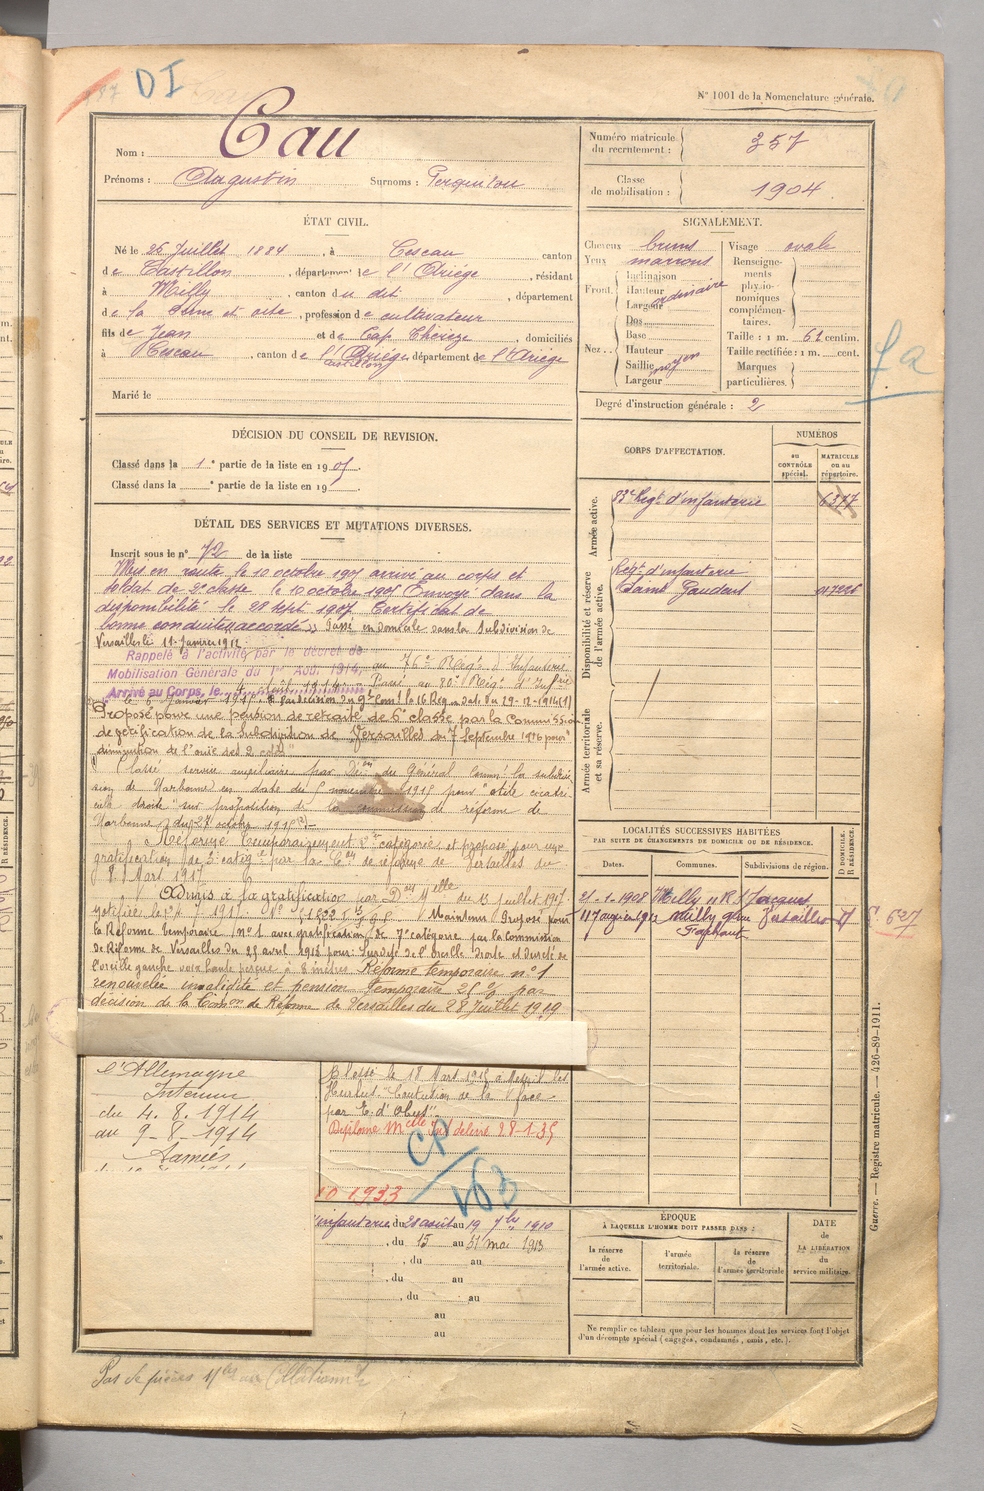 DI
N° 1001 de la Nomenclature générale.
Nom : Cau
Prénoms : Augustin Surnoms : Perquitou
Numéro matricule du recrutement : 357
Classe de mobilisation : 1904
ÉTAT CIVIL.
Né le 25 Juillet 1884, à Cescau canton
de Castillon, département de l'Ariége, résidant
à Milly, canton du dit, département
de la Seine et oise, profession de cultivateur
fils de Jean et de Cap Thérèze, domiciliés
à Cescau, canton de l'Ariége département de l'Ariége
Castillon
Marié le
SIGNALEMENT.
Cheveux bruns
Yeux marrons
Front. Inclinaison
Hauteur
Largeur ordinaire
Nez. Dos
Base
Hauteur
Saillie moyen
Largeur
Visage ovale
Renseignements physionomiques complémentaires.
Taille : 1 m. 61 centim.
Taille rectifiée : 1 m. cent.
Marques particulières.
Degré d'instruction générale : 2
DÉCISION DU CONSEIL DE REVISION.
Classé dans la 1e partie de la liste en 1905.
Classé dans la e partie de la liste en 19
DÉTAIL DES SERVICES ET MUTATIONS DIVERSES.
Inscrit sous le n° 72 de la liste
Mis en route le 10 octobre 1905 arrivé au corps et
soldat de 2e classe le 10 octobre 1905 Envoyé dans la
disponibilité le 28 sept 1907 Certificat de
bonne conduite "accordé" Passé en domicile dans la Subdivision de
Versailles le 11 Janvier 1912
Rappelé à l'activité par le décret de
Mobilisation Générale du 1er Août 1914,
Arrivé au Corps, le 4 Août 1914
au 76e Rég. d'Infanterie
Passé au 80e Rég. d'Infrie
le 6 Janvier 1915
Proposé pour une pension de retraite de 6e classe par la Commission
de gratification de la Subdivision de Versailles du 7 Septembre 1916 pour
diminution de l'ouie des 2 côtés
Classé service auxiliaire par Déon du Général Commt la subdivi
sion de Narbonne en date du 5 novembre 1915 pour "otite cicatri
cielle droite" sur proposition de la commission de réforme de
Narbonne du 27 octobre 1915
Réformé Temporairement 2e catégorie et proposé pour une
gratification de 5e catég. par la Con de réforme de Versailles du
8 Mart 1917
Admis à la gratification par Don Melle du 13 juillet 1917
Maintenu Proposé pour
la Réforme temporaire n° 1 avec gratification de 7e catégorie par la Commission
de Réforme de Versailles du 25 avril 1918 pour Surdité de l'oreille droite et dureté de
l'oreille gauche voix haute perçue à 3 mètres Réforme temporaire n° 1
renouvelée invalidité et pension temporaire 25 % par
décision de la Comon de Réforme de Versailles du 28 Juillet 1919
l'Allemagne
Intérieur
du 4.8.1914
au 9-8-1914
Armées
Blessé le 18 Mart 1915 à Mesnil les
Hurlus - Contusion de la face
par E. d'obus
Diplome Melle délivré 28-1-35
CP
163
10 1933
infanterie du 28 août au 19 7bre 1910
, du 15 au 31 mai 1913
, du au
, du au
, du au
au
au
CORPS D'AFFECTATION.
NUMÉROS
au CONTRÔLE spécial.
MATRICULE ou au répertoire.
Armée active.
83e Régt d'infanterie 6317
Disponibilité et réserve de l'armée active.
Régt d'infanterie
Saint Gaudens
Armée territoriale et sa réserve.
LOCALITÉS SUCCESSIVES HABITÉES
PAR SUITE DE CHANGEMENTS DE DOMICILE OU DE RÉSIDENCE.
Dates. Communes. Subdivisions de région. D DOMICILE. R RÉSIDENCE.
21-1-1908 Milly 11 R St Jacques
11 Janvier 1912 Milly Versailles
627
ÉPOQUE
À LAQUELLE L'HOMME DOIT PASSER DANS :
la réserve de l'armée active.
l'armée territoriale.
la réserve de l'armée territoriale
DATE de LA LIBÉRATION du service militaire.
Ne remplir ce tableau que pour les hommes dont les services font l'objet
d'un décompte spécial (engagés, condamnés, omis, etc.).
Guerre. — Registre matricule. — 426-89-1911.